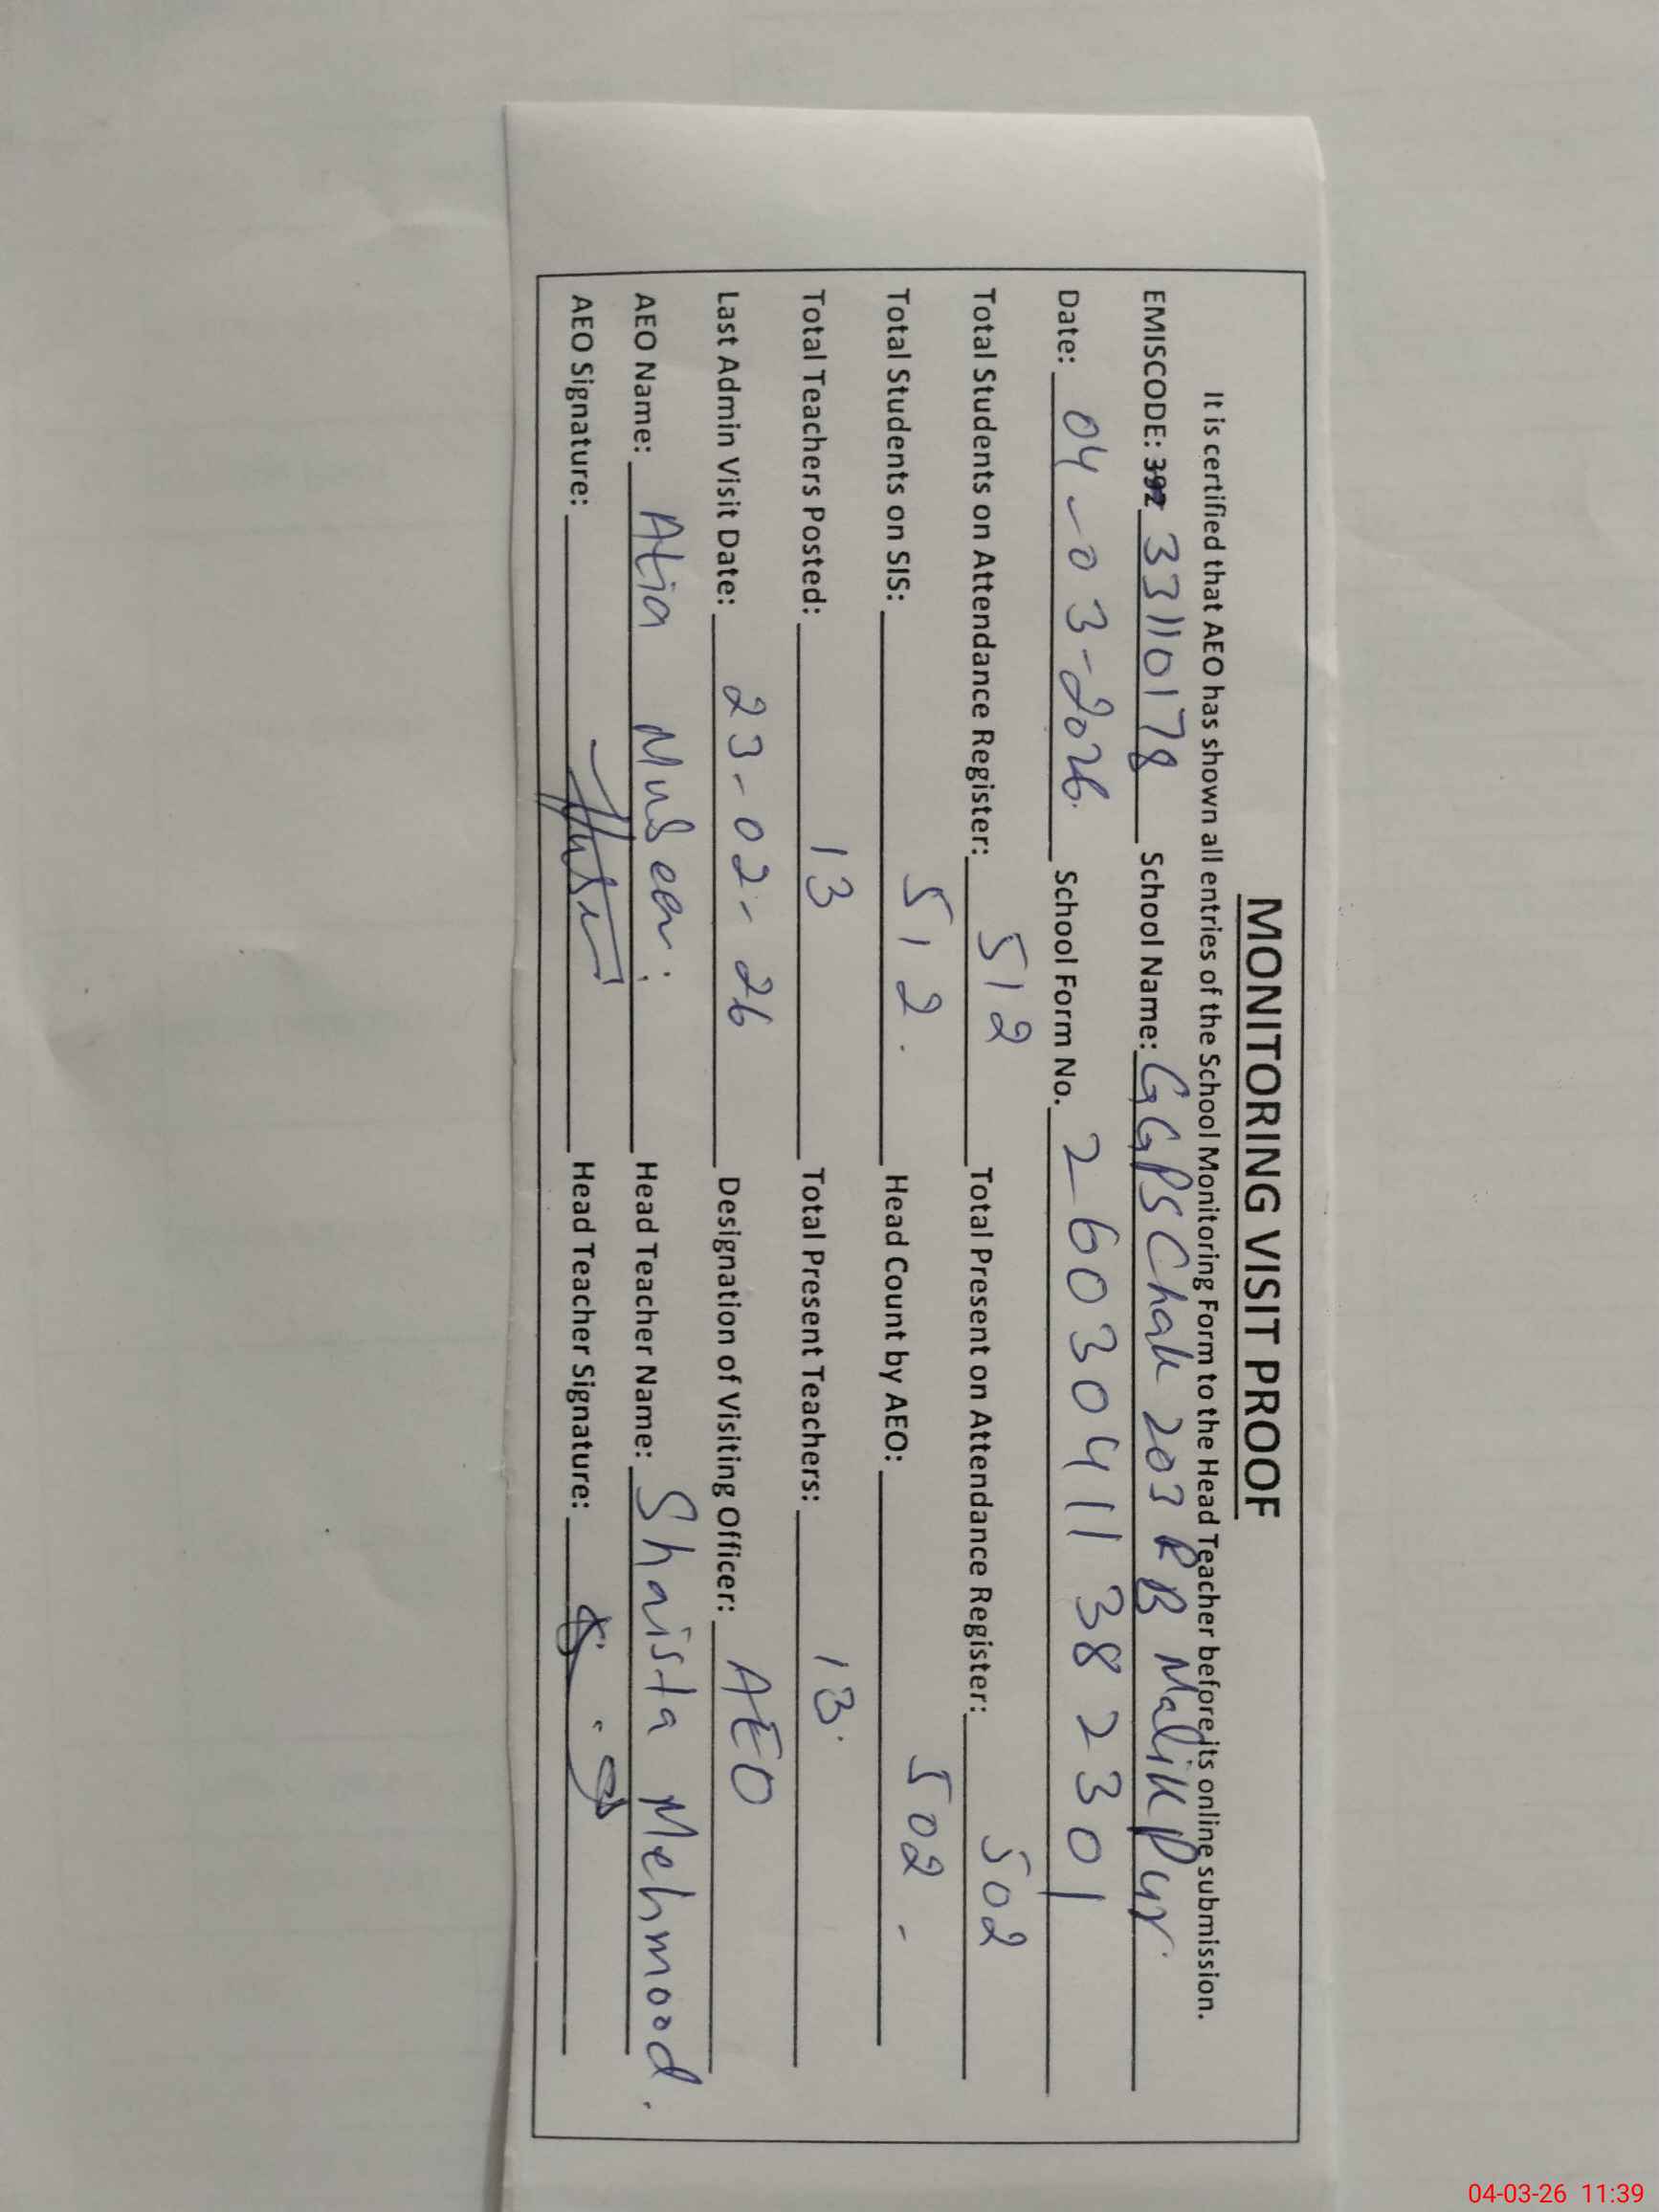 MONITORING VISIT PROOF
It is certified that AEO has shown all entries of the School Monitoring Form to the Head Teacher before its online submission.
EMISCODE: 392 33110178 School Name: GGPS Chak 203 RB Malik Pur
Date: 04-03-2026. School Form No. 2603041138 2301
Total Students on Attendance Register: 512 Total Present on Attendance Register: 502
Total Students on SIS: 512. Head Count by AEO: 502
Total Teachers Posted: 13 Total Present Teachers: 13.
Last Admin Visit Date: 23-02-26 Designation of Visiting Officer: AEO
AEO Name: Atia Head Teacher Name: Shaista Mehmood.
AEO Signature: Head Teacher Signature:
04-03-26 11:39